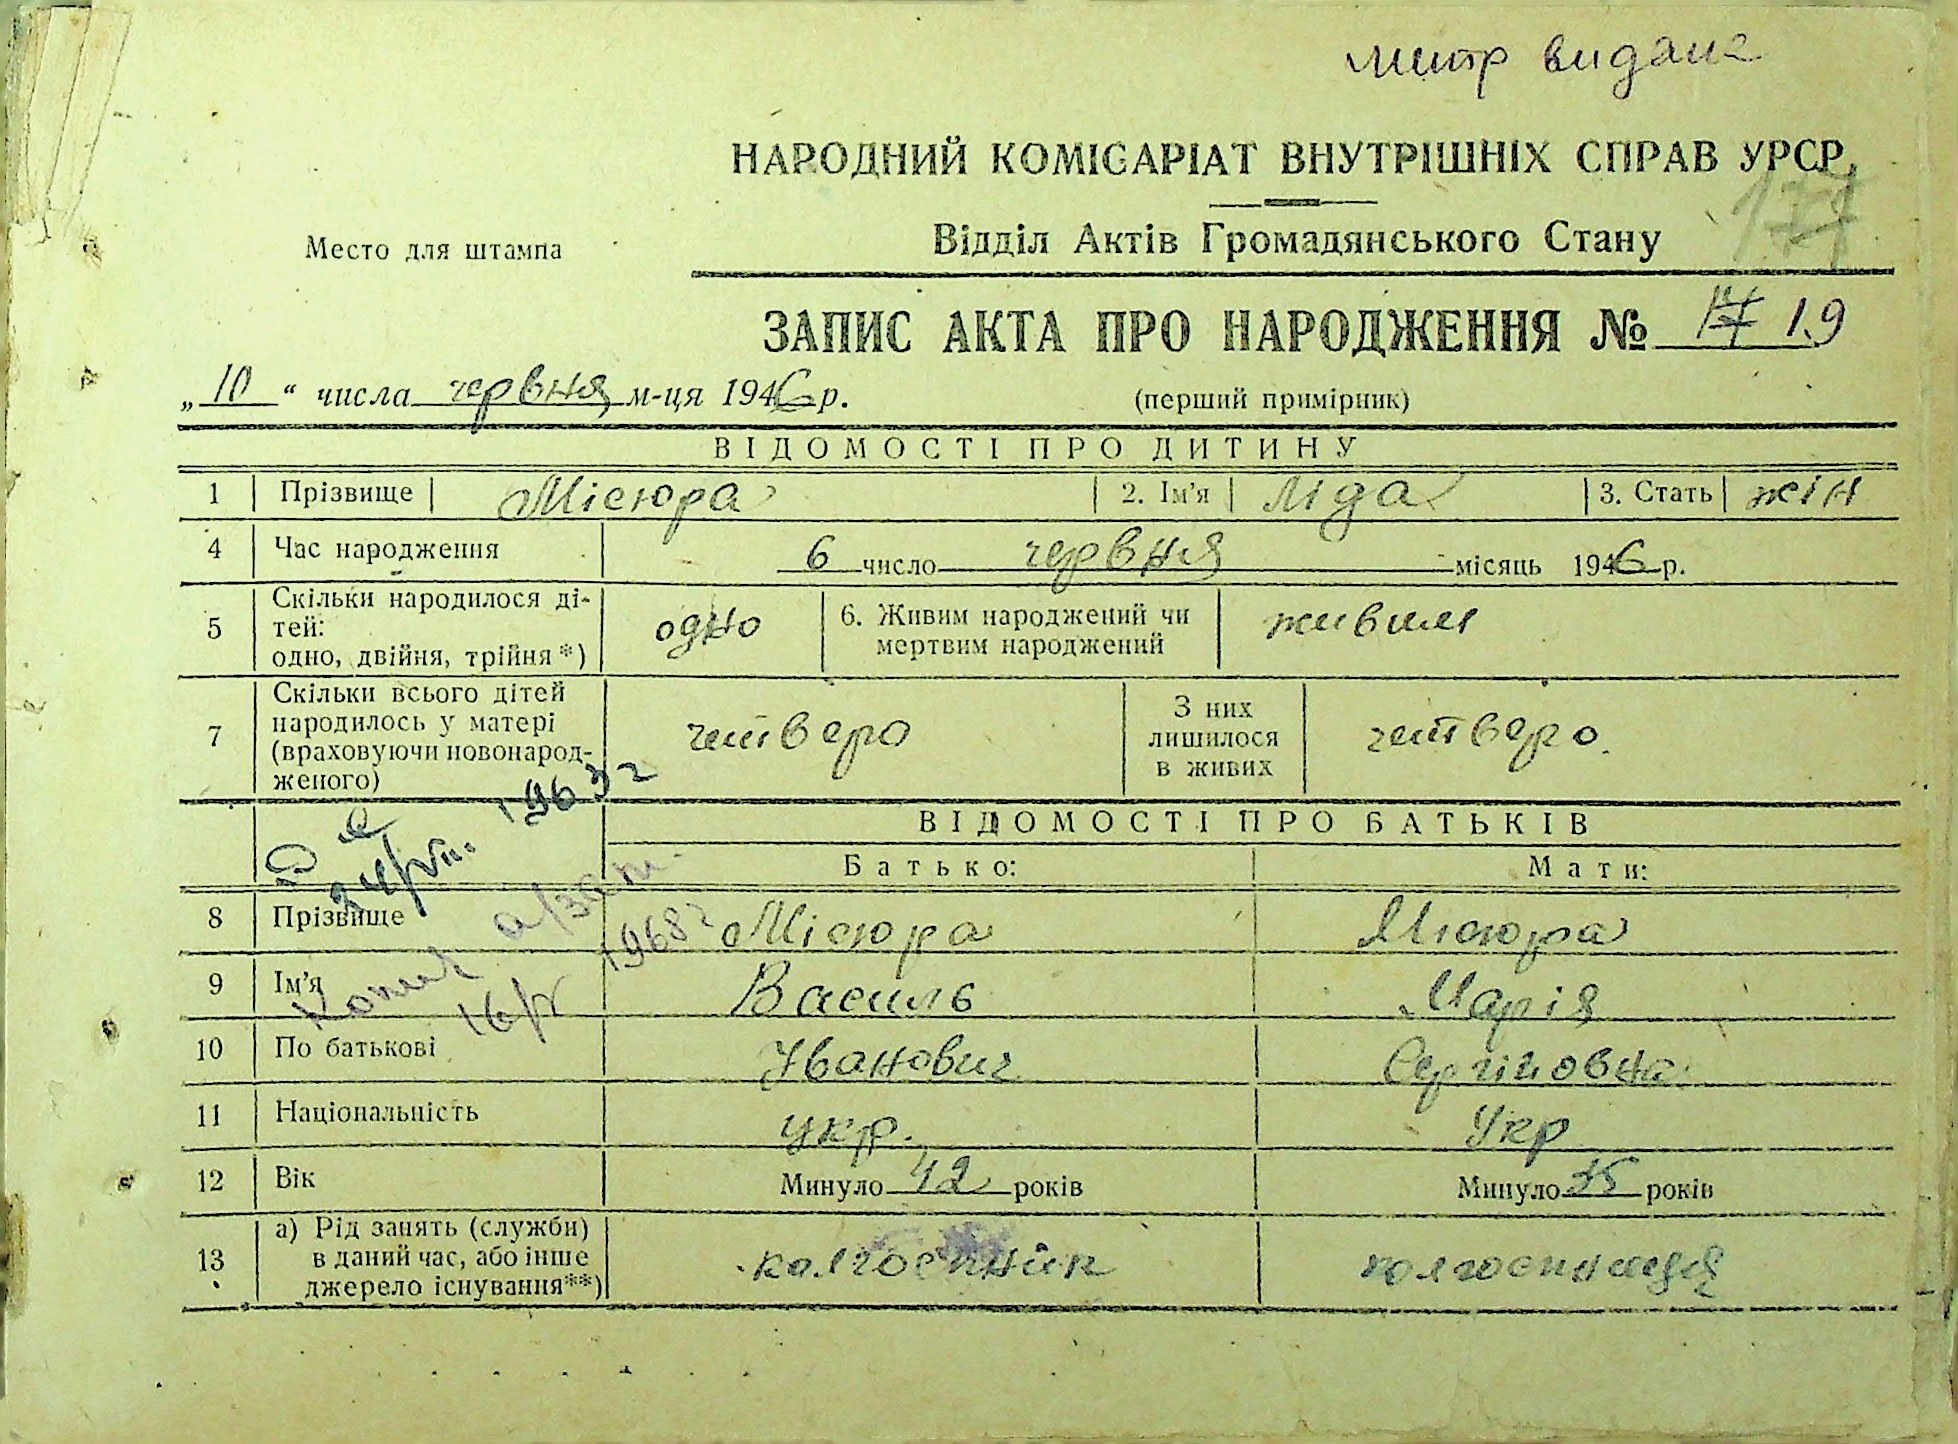 метр видана
НАРОДНИЙ КОМІСАРІАТ ВНУТРІШНІХ СПРАВ УРСР
177
Место для штампа
Відділ Актів Громадянського Стану
ЗАПИС АКТА ПРО НАРОДЖЕННЯ № 17 19
„10“ числа червня м-ця 1946 р.
(перший примірник)
ВІДОМОСТІ ПРО ДИТИНУ
1 Прізвище Місюра 2. Ім'я Ліда 3. Стать жін
4 Час народження 6 число червня місяць 1946 р.
5 Скільки народилося ді-
тей:
одно, двійня, трійня*) одно 6. Живим народжений чи
мертвим народжений живим
7 Скільки всього дітей
народилось у матері
(враховуючи новонарод-
женого) четверо З них
лишилося
в живих четверо
24/VII. 1963 г
ВІДОМОСТІ ПРО БАТЬКІВ
Батько: Мати:
8 Прізвище Місюра Місюра
Копия а/зап.
16/V 1968 г
9 Ім'я Василь Марія
10 По батькові Іванович Сергіївна
11 Національність укр. Укр
12 Вік Минуло 42 років Минуло 35 років
13 а) Рід занять (служби)
в даний час, або інше
джерело існування**) колгоспник колгоспниця